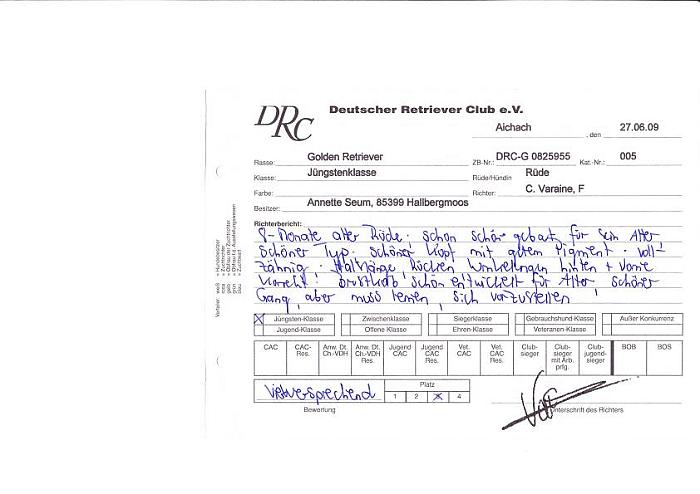 DRC Deutscher Retriever Club e.V.
Aichach, den 27.06.09
Rasse: Golden Retriever ZB-Nr.: DRC-G 0825955 Kat.-Nr.: 005
Klasse: Jüngstenklasse Rüde/Hündin Rüde
Farbe: Richter: C. Varaine, F
Besitzer: Annette Seum, 85399 Hallbergmoos
Richterbericht:
8-Monate alter Rüde, schon schön gebaut für sein Alter
schöner Typ. schöner Kopf mit gutem Pigment. voll-
zähnig. Halslänge, Rücken Winkelungen hinten + vorne
korrekt! Brustkorb schön entwickelt für Alter schöner
Gang, aber muss lernen, sich vorzustellen!
X Jüngsten-Klasse Zwischenklasse Siegerklasse Gebrauchshund-Klasse Außer Konkurrenz
Jugend-Klasse Offene Klasse Ehren-Klasse Veteranen-Klasse
CAC CAC-Res. Anw. Dt. Ch.-VDH Anw. Dt. Ch.-VDH Res. Jugend CAC Jugend CAC Res. Vet. CAC Vet. CAC Res. Club-sieger Club-sieger mit Arb. prfg. Club-jugend-sieger BOB BOS
vielversprechend Platz
1 2 X 4
Bewertung Unterschrift des Richters
Verteiler: weiß = Hundebesitzer